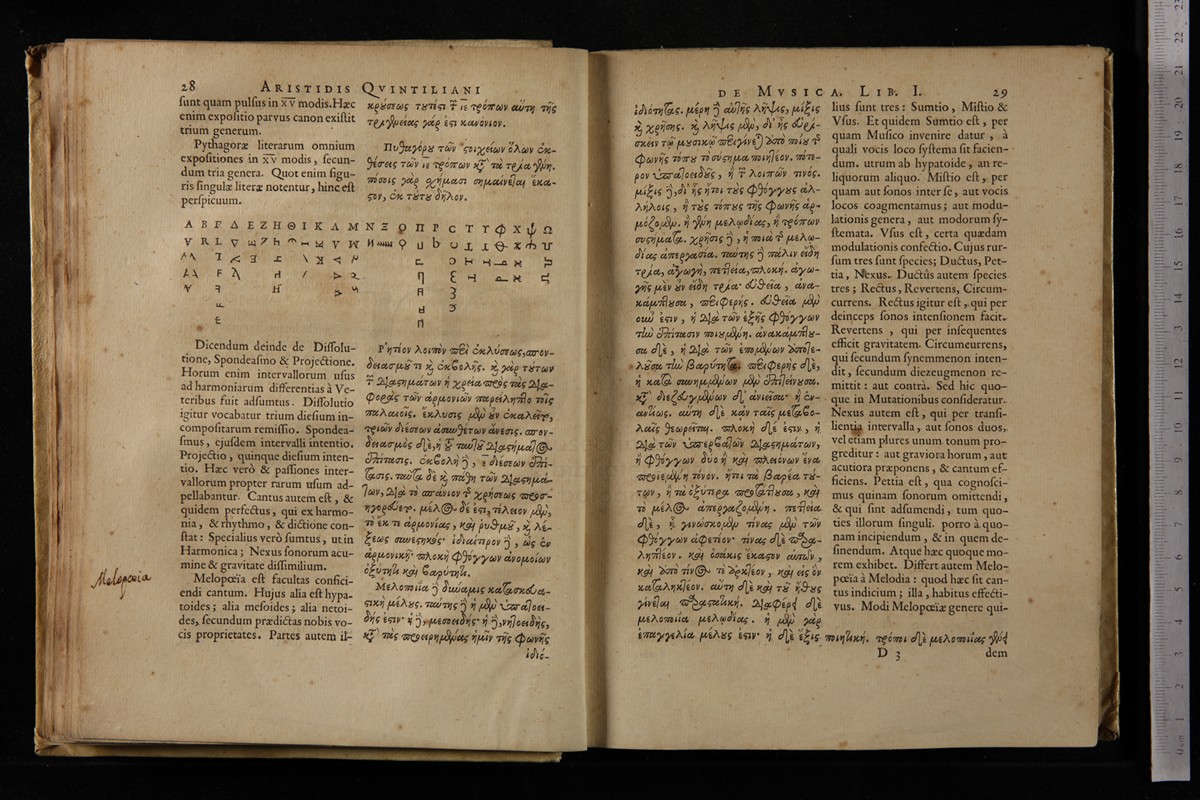 28 ARISTIDIS QVINTILIANI
sunt quam pulsus in xv modis. Hæc
enim expositio parvus canon existit
trium generum.
Pythagoræ literarum omnium
expositiones in xv modis, secun-
dum tria genera. Quot enim figu-
ris singulæ literæ notentur, hinc est
perspicuum.
κρούσεως τουτέστι τ ιε τρόπων αὕτη τῆς
τριγμείας γάρ ἐστι κανόνιον.
Πυθαγόρου τῶν στοιχείων ὅλων ἐκ-
θέσεις τῶν ιε τρόπων κατὰ τὰ τρία γένη.
πόσοις γὰρ σχήμασι σημαίνεται ἕκα-
στον, ἐκ τούτου δῆλον.
Α Β Γ Δ Ε Ζ Η Θ Ι Κ Λ Μ Ν Ξ Ο Π Ρ С Τ Υ Φ Χ Ψ Ω
Dicendum deinde de Dissolu-
tione, Spondeasmo & Projectione.
Horum enim intervallorum usus
ad harmoniarum differentias à Ve-
teribus fuit adsumtus. Dissolutio
igitur vocabatur trium diesium in-
compositarum remissio. Spondea-
smus, ejusdem intervalli intentio.
Projectio, quinque diesium inten-
tio. Hæc verò & passiones inter-
vallorum propter rarum usum ad-
pellabantur. Cantus autem est, &
quidem perfectus, qui ex harmo-
nia, & rhythmo, & dictione con-
stat: Specialius verò sumtus, ut in
Harmonica; Nexus sonorum acu-
mine & gravitate dissimilium.
Melopœïa est facultas confici-
endi cantum. Hujus alia est hypa-
toides; alia mesoides; alia netoi-
des, secundum prædictas nobis vo-
cis proprietates. Partes autem il-
Melopœia
Ῥητέον λοιπὸν περὶ ἐκλύσεως, σπον-
δειασμοῦ τε καὶ ἐκβολῆς. καὶ γὰρ τούτων
τ διαστημάτων ἡ χρεία πρὸς τὰς δια-
φορὰς τῶν ἁρμονιῶν παρείληπτο τοῖς
παλαιοῖς. ἔκλυσις μὲν οὖν ἐκαλεῖτο,
τριῶν διέσεων ἀσυνθέτων ἄνεσις. σπον-
δειασμὸς δὲ, ἡ τ ταυτοῦ διαστήματος
ἐπίτασις. ἐκβολὴ ἢ, ε διέσεων ἐπί-
τασις. ταῦτα δὲ καὶ πάθη τῶν διαστημά-
των, διὰ τὸ σπάνιον τ χρήσεως προσ-
ηγορεύετο. μέλος δέ ἐστι, τέλειον μὲν,
τὸ ἔκ τε ἁρμονίας, καὶ ῥυθμοῦ, καὶ λέ-
ξεως συνεστηκός· ἰδιαίτερον ἢ, ὡς ἐν
ἁρμονικῇ· πλοκὴ φθόγγων ἀνομοίων
ὀξύτητι καὶ βαρύτητι.
Μελοποιΐα ἢ δύναμις κατασκευα-
στικὴ μέλους. ταύτης ἢ ἡ μὲν ὑπατοει-
δής ἐστιν· ἡ ἢ, μεσοειδής· ἡ ἢ, νητοειδής,
κατὰ τὰς προειρημένας ἡμῖν τῆς φωνῆς
ἰδιό-
DE MVSICA. LIB. I. 29
ἰδιότητας. μέρη ἢ αὐτῆς λῆψις, μίξις
καὶ χρῆσις. καὶ λῆψις μὲν, δι' ἧς εὑρί-
σκειν τῷ μουσικῷ περιγίνεται ἀπὸ ποίου τ
φωνῆς τόπου τὸ σύστημα ποιητέον. πότε-
ρον ὑπατοειδοῦς, ἢ τ λοιπῶν τινός.
μίξις ἢ, δι' ἧς ἤτοι τοὺς φθόγγους ἀλ-
λήλοις, ἢ τοὺς τόπους τῆς φωνῆς ἁρ-
μόζομεν. ἢ γένη μελωδίας, ἢ τρόπων
συστήματα. χρῆσις ἢ, ἡ ποιὰ τ μελω-
δίας ἀπεργασία. ταύτης ἢ πάλιν εἴδη
τρία, ἀγωγὴ, πεττεία, πλοκή. ἀγω-
γῆς μὲν οὖν εἴδη τρία· εὐθεῖα, ἀνα-
κάμπτουσα, περιφερής. εὐθεῖα μὲν
οὖν ἐστιν, ἡ διὰ τῶν ἑξῆς φθόγγων
τὴν ἐπίτασιν ποιουμένη. ἀνακάμπτου-
σα δὲ, ἡ διὰ τῶν ἑπομένων ἀποτε-
λοῦσα τὴν βαρύτητα. περιφερὴς δὲ,
ἡ κατὰ συνημμένων μὲν ἐπιτείνουσα.
κατὰ διεζευγμένων δ' ἀνιεῖσα· ἢ ἐν-
αντίως. αὕτη δὲ κἀν ταῖς μεταβο-
λαῖς θεωρεῖται. πλοκὴ δέ ἐστιν, ἡ
διὰ τῶν ὑπερβατῶν διαστημάτων,
ἢ φθόγγων δύο ἢ καὶ πλειόνων ἕνα
προϊεμένη τόνον. ἤτοι τὰ βαρέα τού-
των, ἢ τὰ ὀξύτερα προτάττουσα, καὶ
τὸ μέλος ἀπεργαζομένη. πεττεία
δὲ, ᾗ γινώσκομεν τίνας μὲν τῶν
φθόγγων ἀφετέον· τίνας δὲ παρα-
ληπτέον. καὶ ὁσάκις ἕκαστον αὐτῶν.
καὶ ἀπὸ τίνος τε ἀρκτέον, καὶ εἰς ὃν
καταληκτέον. αὕτη δὲ καὶ τοῦ ἤθους
γίνεται παραστατική. διαφέρει δὲ
μελοποιΐα μελωδίας. ἡ μὲν γὰρ
ἐπαγγελία μέλους ἐστίν· ἡ δὲ ἕξις ποιητική. τρόποι δὲ μελοποιΐας γένει
lius sunt tres: Sumtio, Mistio &
Vsus. Et quidem Sumtio est, per
quam Musico invenire datur, à
quali vocis loco systema sit facien-
dum. utrum ab hypatoide, an re-
liquorum aliquo. Mistio est, per
quam aut sonos inter se, aut vocis
locos coagmentamus; aut modu-
lationis genera, aut modorum sy-
stemata. Vsus est, certa quædam
modulationis confectio. Cujus rur-
sum tres sunt species; Ductus, Pet-
tia, Nexus. Ductûs autem species
tres; Rectus, Revertens, Circum-
currens. Rectus igitur est, qui per
deinceps sonos intensionem facit.
Revertens, qui per insequentes
efficit gravitatem. Circumcurrens,
qui secundum synemmenon inten-
dit, secundum diezeugmenon re-
mittit: aut contrà. Sed hic quo-
que in Mutationibus consideratur.
Nexus autem est, qui per transi-
lientia intervalla, aut sonos duos,
vel etiam plures unum tonum pro-
greditur: aut graviora horum, aut
acutiora præponens, & cantum ef-
ficiens. Pettia est, qua cognosci-
mus quinam sonorum omittendi,
& qui sint adsumendi, tum quo-
ties illorum singuli. porro à quo-
nam incipiendum, & in quem de-
sinendum. Atque hæc quoque mo-
rem exhibet. Differt autem Melo-
pœïa à Melodia: quod hæc sit can-
tus indicium; illa, habitus effecti-
vus. Modi Melopœïæ genere qui-
D 3 dem